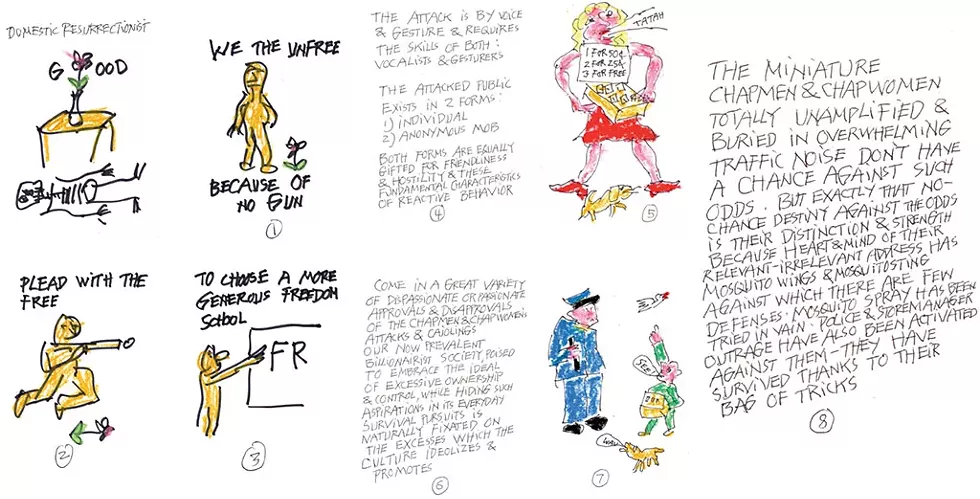 DOMESTIC RESURRECTIONIST
G OOD
WE THE UNFREE
BECAUSE OF
NO GUN
1
PLEAD WITH THE
FREE
2
TO CHOOSE A MORE
GENEROUS FREEDOM
SCHOOL
FR
3
THE ATTACK IS BY VOICE
& GESTURE & REQUIRES
THE SKILLS OF BOTH:
VOCALISTS & GESTURERS
THE ATTACKED PUBLIC
EXISTS IN 2 FORMS:
1) INDIVIDUAL
2) ANONYMOUS MOB
BOTH FORMS ARE EQUALLY
GIFTED FOR FRENDLINESS
& HOSTILITY & THESE
FUNDAMENTAL CHARACTERISTICS
OF REACTIVE BEHAVIOR
4
TATAH
1 FOR 50¢
2 FOR 25¢
3 FOR FREE
5
COME IN A GREAT VARIETY
OF DISPASSIONATE OR PASSIONATE
APPROVALS & DISAPPROVALS
OF THE CHAPMEN & CHAPWOMEN'S
ATTACKS & CAJOLINGS
OUR NOW PREVALENT
BILLIONAIRIST SOCIETY, POISED
TO EMBRACE THE IDEAL
OF EXCESSIVE OWNERSHIP
& CONTROL, WHILE HIDING SUCH
ASPIRATIONS IN ITS EVERYDAY
SURVIVAL PURSUITS IS
NATURALLY FIXATED ON
THE EXCESSES WHICH THE
CULTURE IDEOLIZES &
PROMOTES
6
SEE!
7
THE MINIATURE
CHAPMEN & CHAPWOMEN
TOTALLY UNAMPLIFIED &
BURIED IN OVERWHELMING
TRAFFIC NOISE DON'T HAVE
A CHANCE AGAINST SUCH
ODDS. BUT EXACTLY THAT NO-
CHANCE DESTINY AGAINST THE ODDS
IS THEIR DISTINCTION & STRENGTH
BECAUSE HEART & MIND OF THEIR
RELEVANT-IRRELEVANT ADDRESS HAS
MOSQUITO WINGS & MOSQUITOSTING
AGAINST WHICH THERE ARE FEW
DEFENSES. MOSQUITO SPRAY HAS BEEN
TRIED IN VAIN. POLICE & STOREMANAGER
OUTRAGE HAVE ALSO BEEN ACTIVATED
AGAINST THEM - THEY HAVE
SURVIVED THANKS TO THEIR
BAG OF TRICKS
8